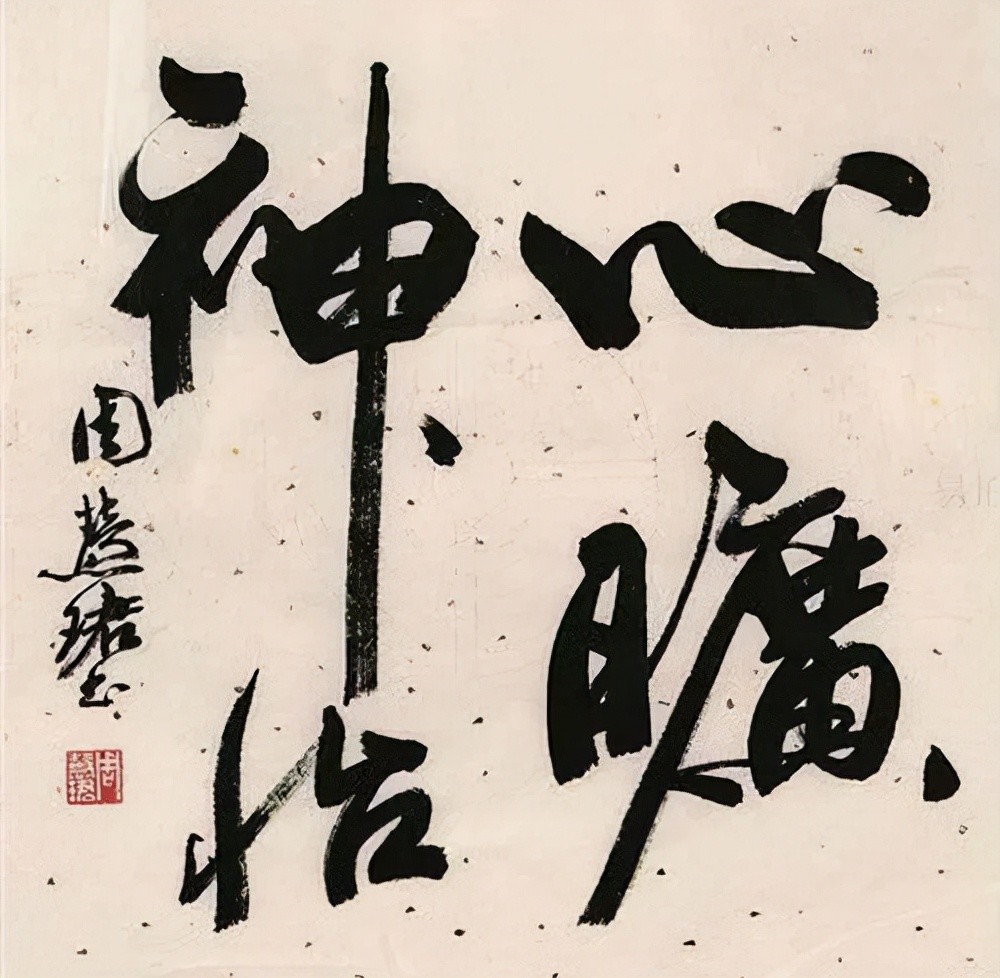 心曠
神怡
周慧珺书
周慧珺